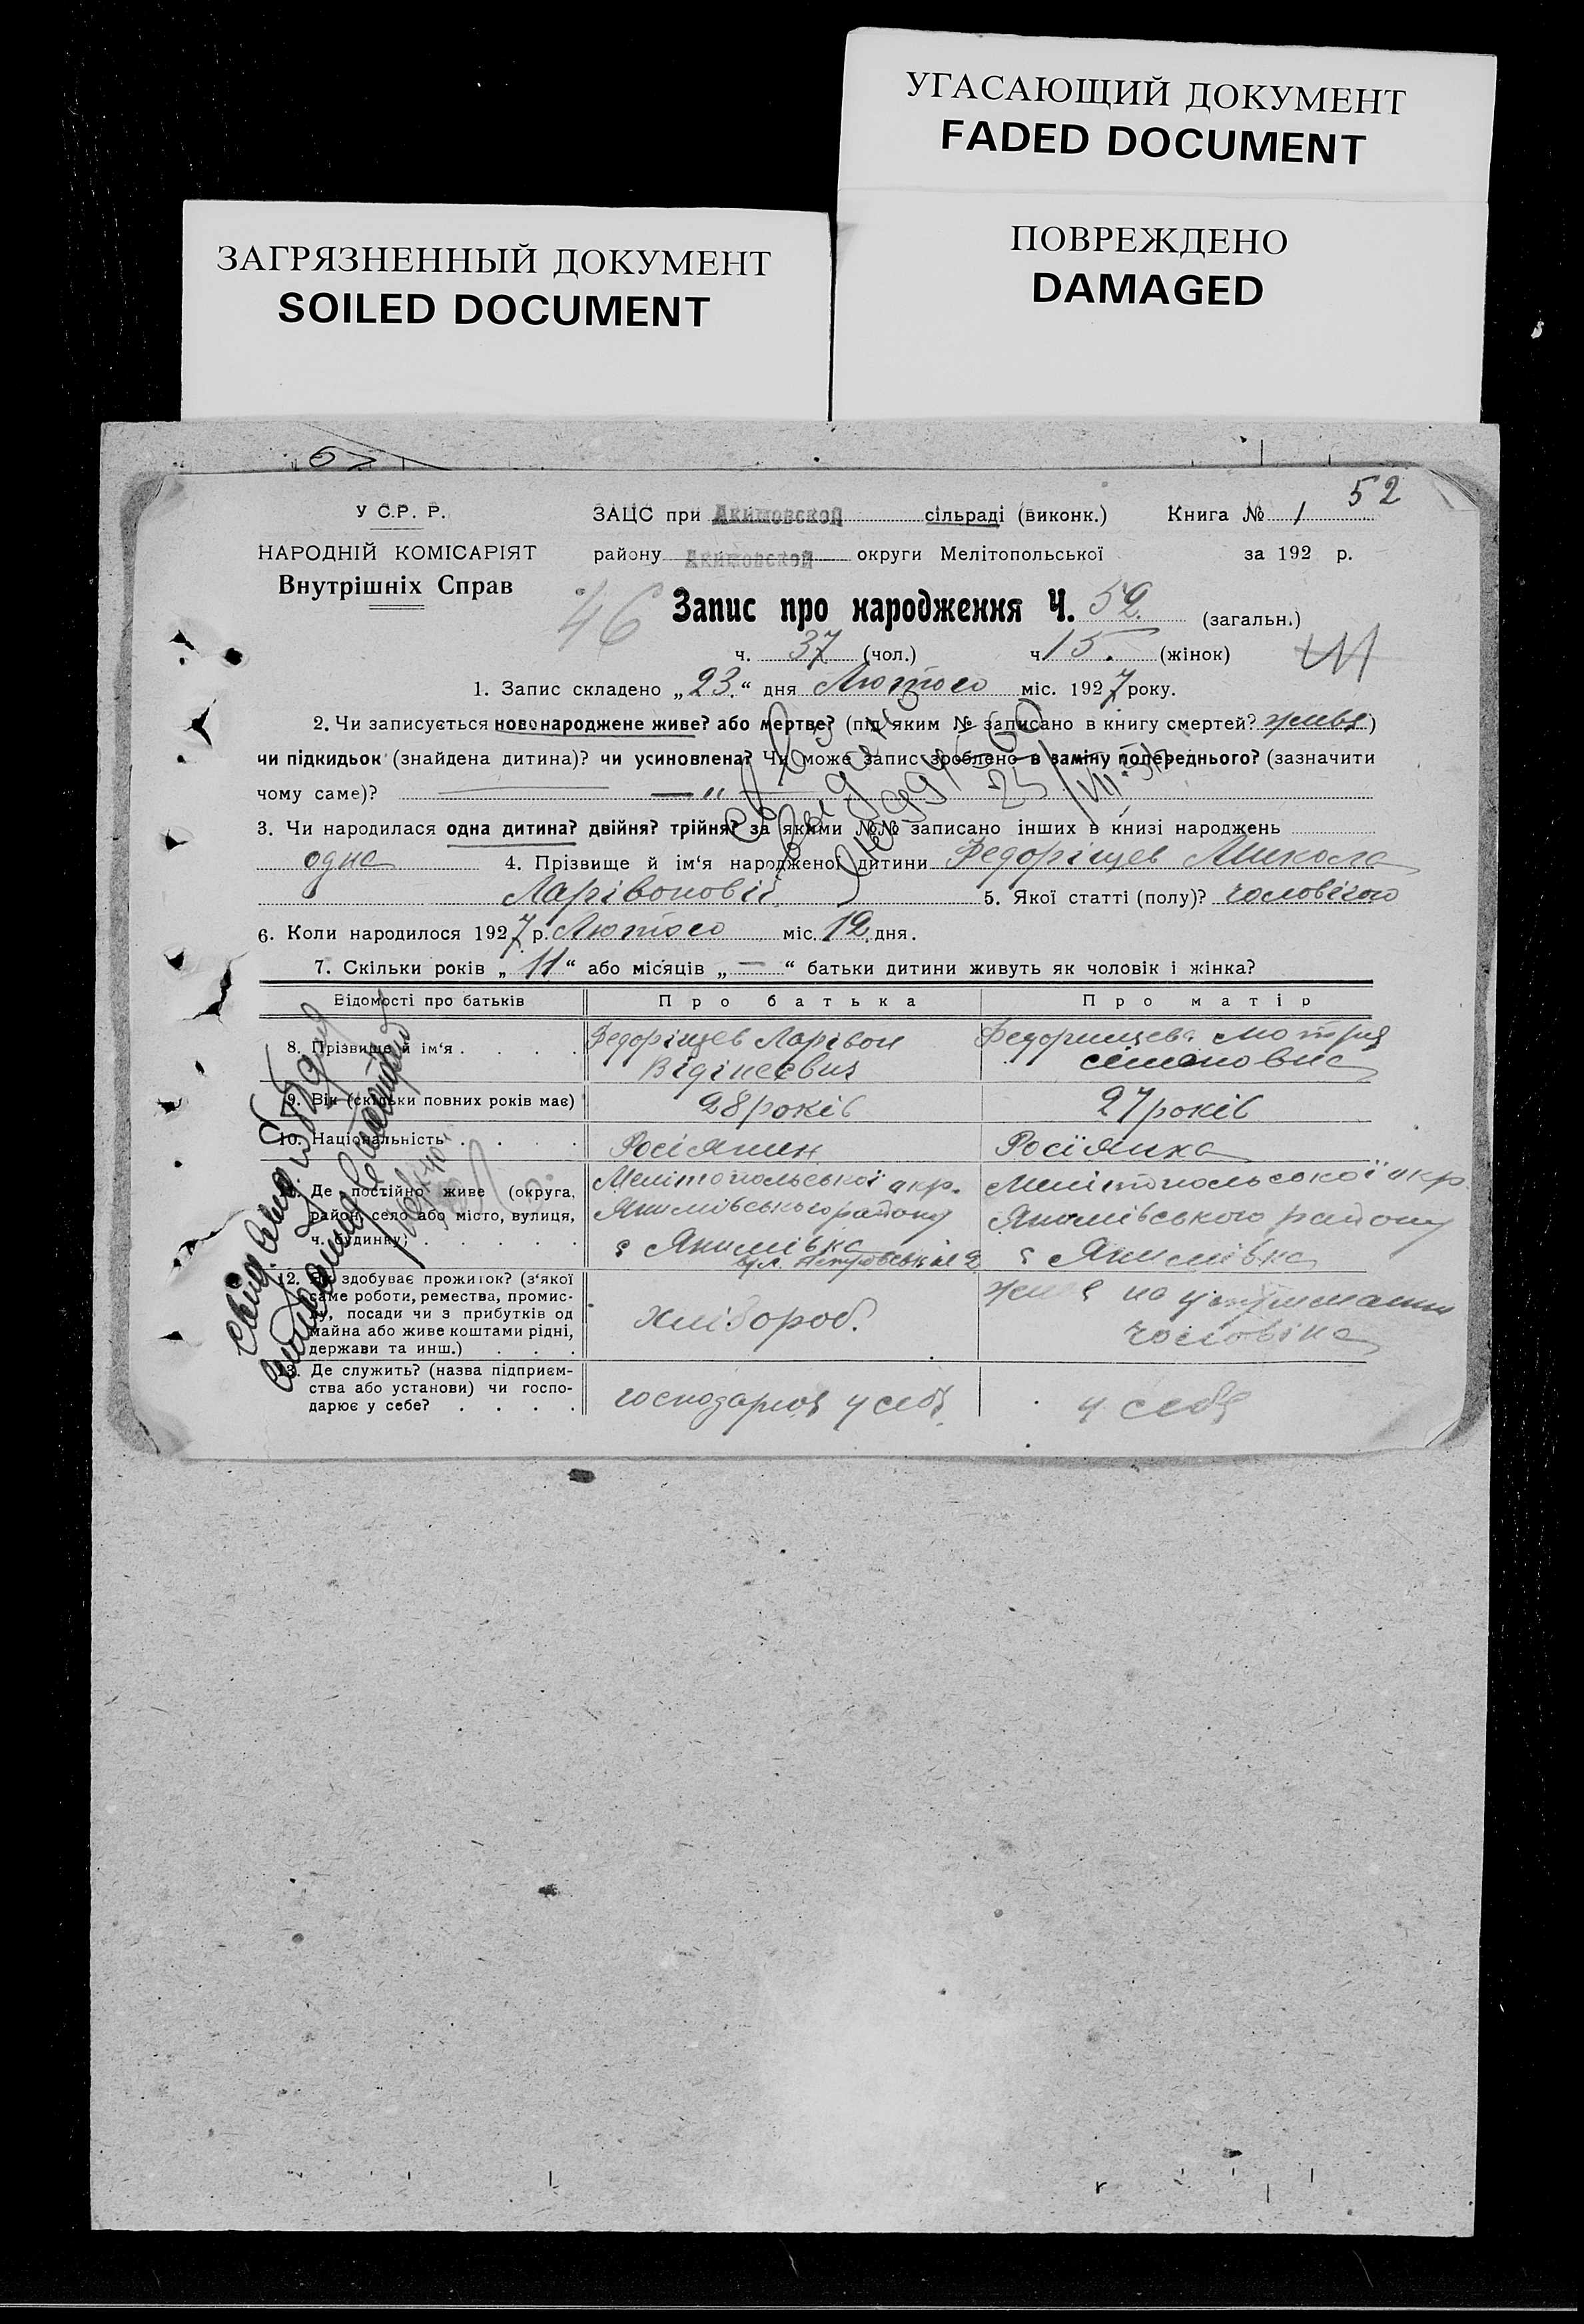 УГАСАЮЩИЙ ДОКУМЕНТ
FADED DOCUMENT
ЗАГРЯЗНЕННЫЙ ДОКУМЕНТ
SOILED DOCUMENT
ПОВРЕЖДЕНО
DAMAGED
52
У С.Р. Р.
НАРОДНІЙ КОМІСАРІЯТ
Внутрішніх Справ
ЗАЦС при Акимовской сільраді (виконк.) Книга № 1
району Акимовской округи Мелітопольської за 192 р.
46
Запис про народження Ч. 52. (загальн.)
ч. 37 (чол.) ч 15. (жінок)
1. Запис складено „23.“ дня Лютого міс. 1927 року.
2. Чи записується новонароджене живе? або мертве? (під яким № записано в книгу смертей? живе)
чи підкидьок (знайдена дитина)? чи усиновлена? Чи може запис зроблено в заміну попереднього? (зазначити
чому саме)? — „ —
3. Чи народилася одна дитина? двійня? трійня? за якими №№ записано інших в книзі народжень
одна 4. Прізвище й ім‘я народженої дитини Федоріщев Микола
Ларівонові 5. Якої статті (полу)? чоловічого
6. Коли народилося 1927 р. Лютого міс. 12 дня.
7. Скільки років „ 11 “ або місяців „ — “ батьки дитини живуть як чоловік і жінка?
Відомості про батьків Про батька Про матір
8. Прізвище й ім‘я . . . . Федоріщев Ларівон Федорищева Мотря
семеновна
9. Вік (скільки повних років має) 28 років 27 років
10. Національність . . . . Росіянин Росіянка
11. Де постійно живе (округа, Мелітопольської окр. Мелітопольської окр.
район, село або місто, вулиця, Якимівського району Якимівського району
ч. будинку) . . . . . с Якимівка с Якимівка
12. Як здобуває прожиток? (з‘якої
саме роботи, ремества, промис-
лу, посади чи з прибутків од хлібороб. живе на утриманні
майна або живе коштами рідні, чоловіка
держави та инш.) . . .
13. Де служить? (назва підприєм-
ства або установи) чи госпо- господарює у себе у себе
дарює у себе? . . . .